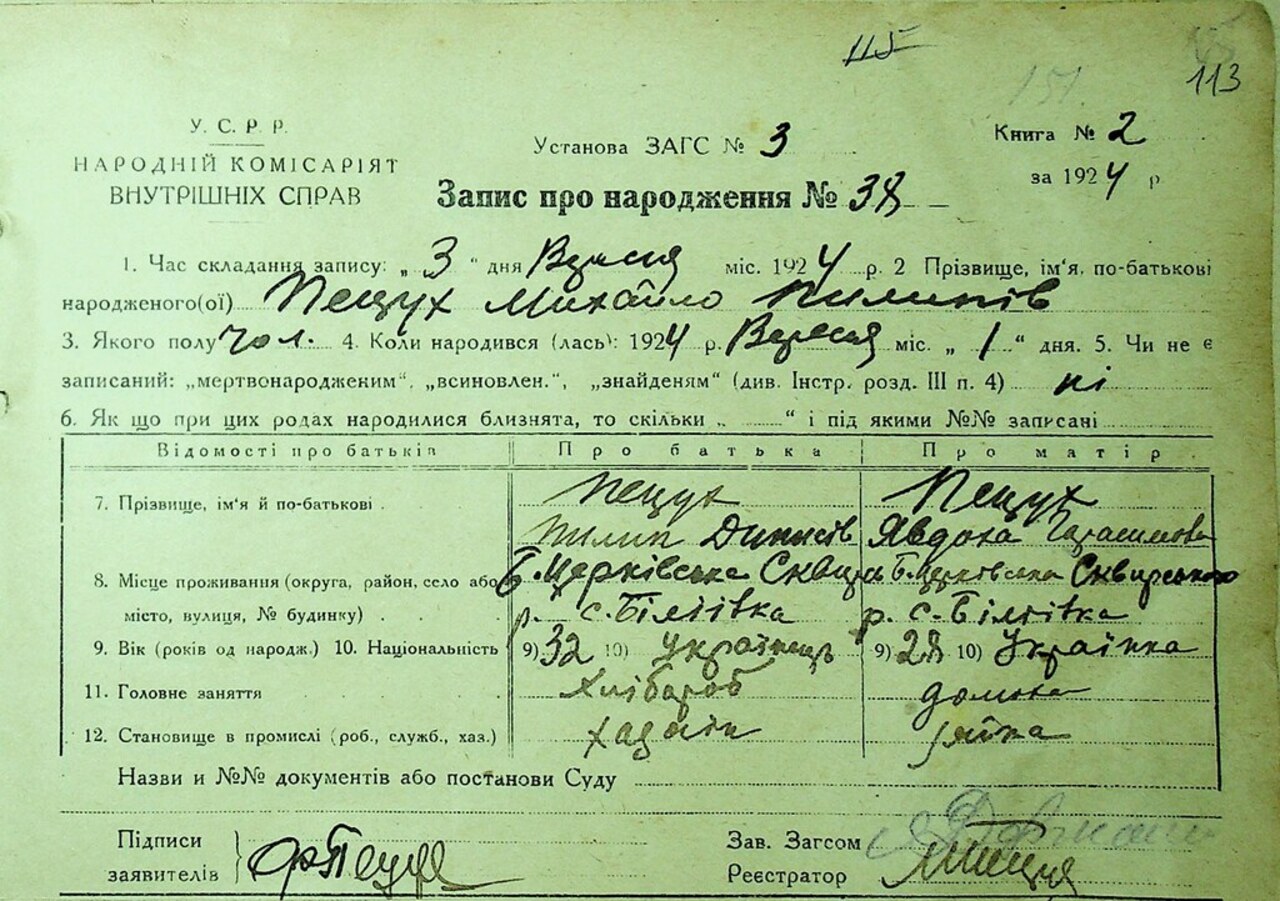 115
151.
113
У. С. Р. Р.
НАРОДНІЙ КОМІСАРІЯТ
ВНУТРІШНІХ СПРАВ
Установа ЗАГС № 3
Книга № 2
за 1924 р
Запис про народження № 38
1. Час складання запису: „ 3 " дня Вересня міс. 1924 р. 2 Прізвище, ім'я, по-батькові
народженого(ої) Пещух Михайло Пилипів
3. Якого полу чол. 4. Коли народився (лась): 1924 р. Вересня міс. „ 1 " дня. 5. Чи не є
записаний: „мертвонародженим", „всиновлен.", „знайденям" (див. Інстр. розд. III п. 4) ні
6. Як що при цих родах народилися близнята, то скільки „ " і під якими №№ записані
Відомості про батьків Про батька Про матір
7. Прізвище, ім'я й по-батькові . Пещух Пещух
Пилип Денисів Явдоха Гарасимова
8. Місце проживання (округа, район, село або Б. Церківська Б. Церковська Сквирського
місто, вулиця, № будинку) . р. с. Біліївка р. с. Біліївка
9. Вік (років од народж.) 10. Національність 9) 32 10) Українець 9) 28 10) Українка
11. Головне заняття Хлібароб домохо
12. Становище в промислі (роб., служб., хаз.) хадяїн зяйка
Назви и №№ документів або постанови Суду
Підписи
заявителів
Зав. Загсом
Реєстратор